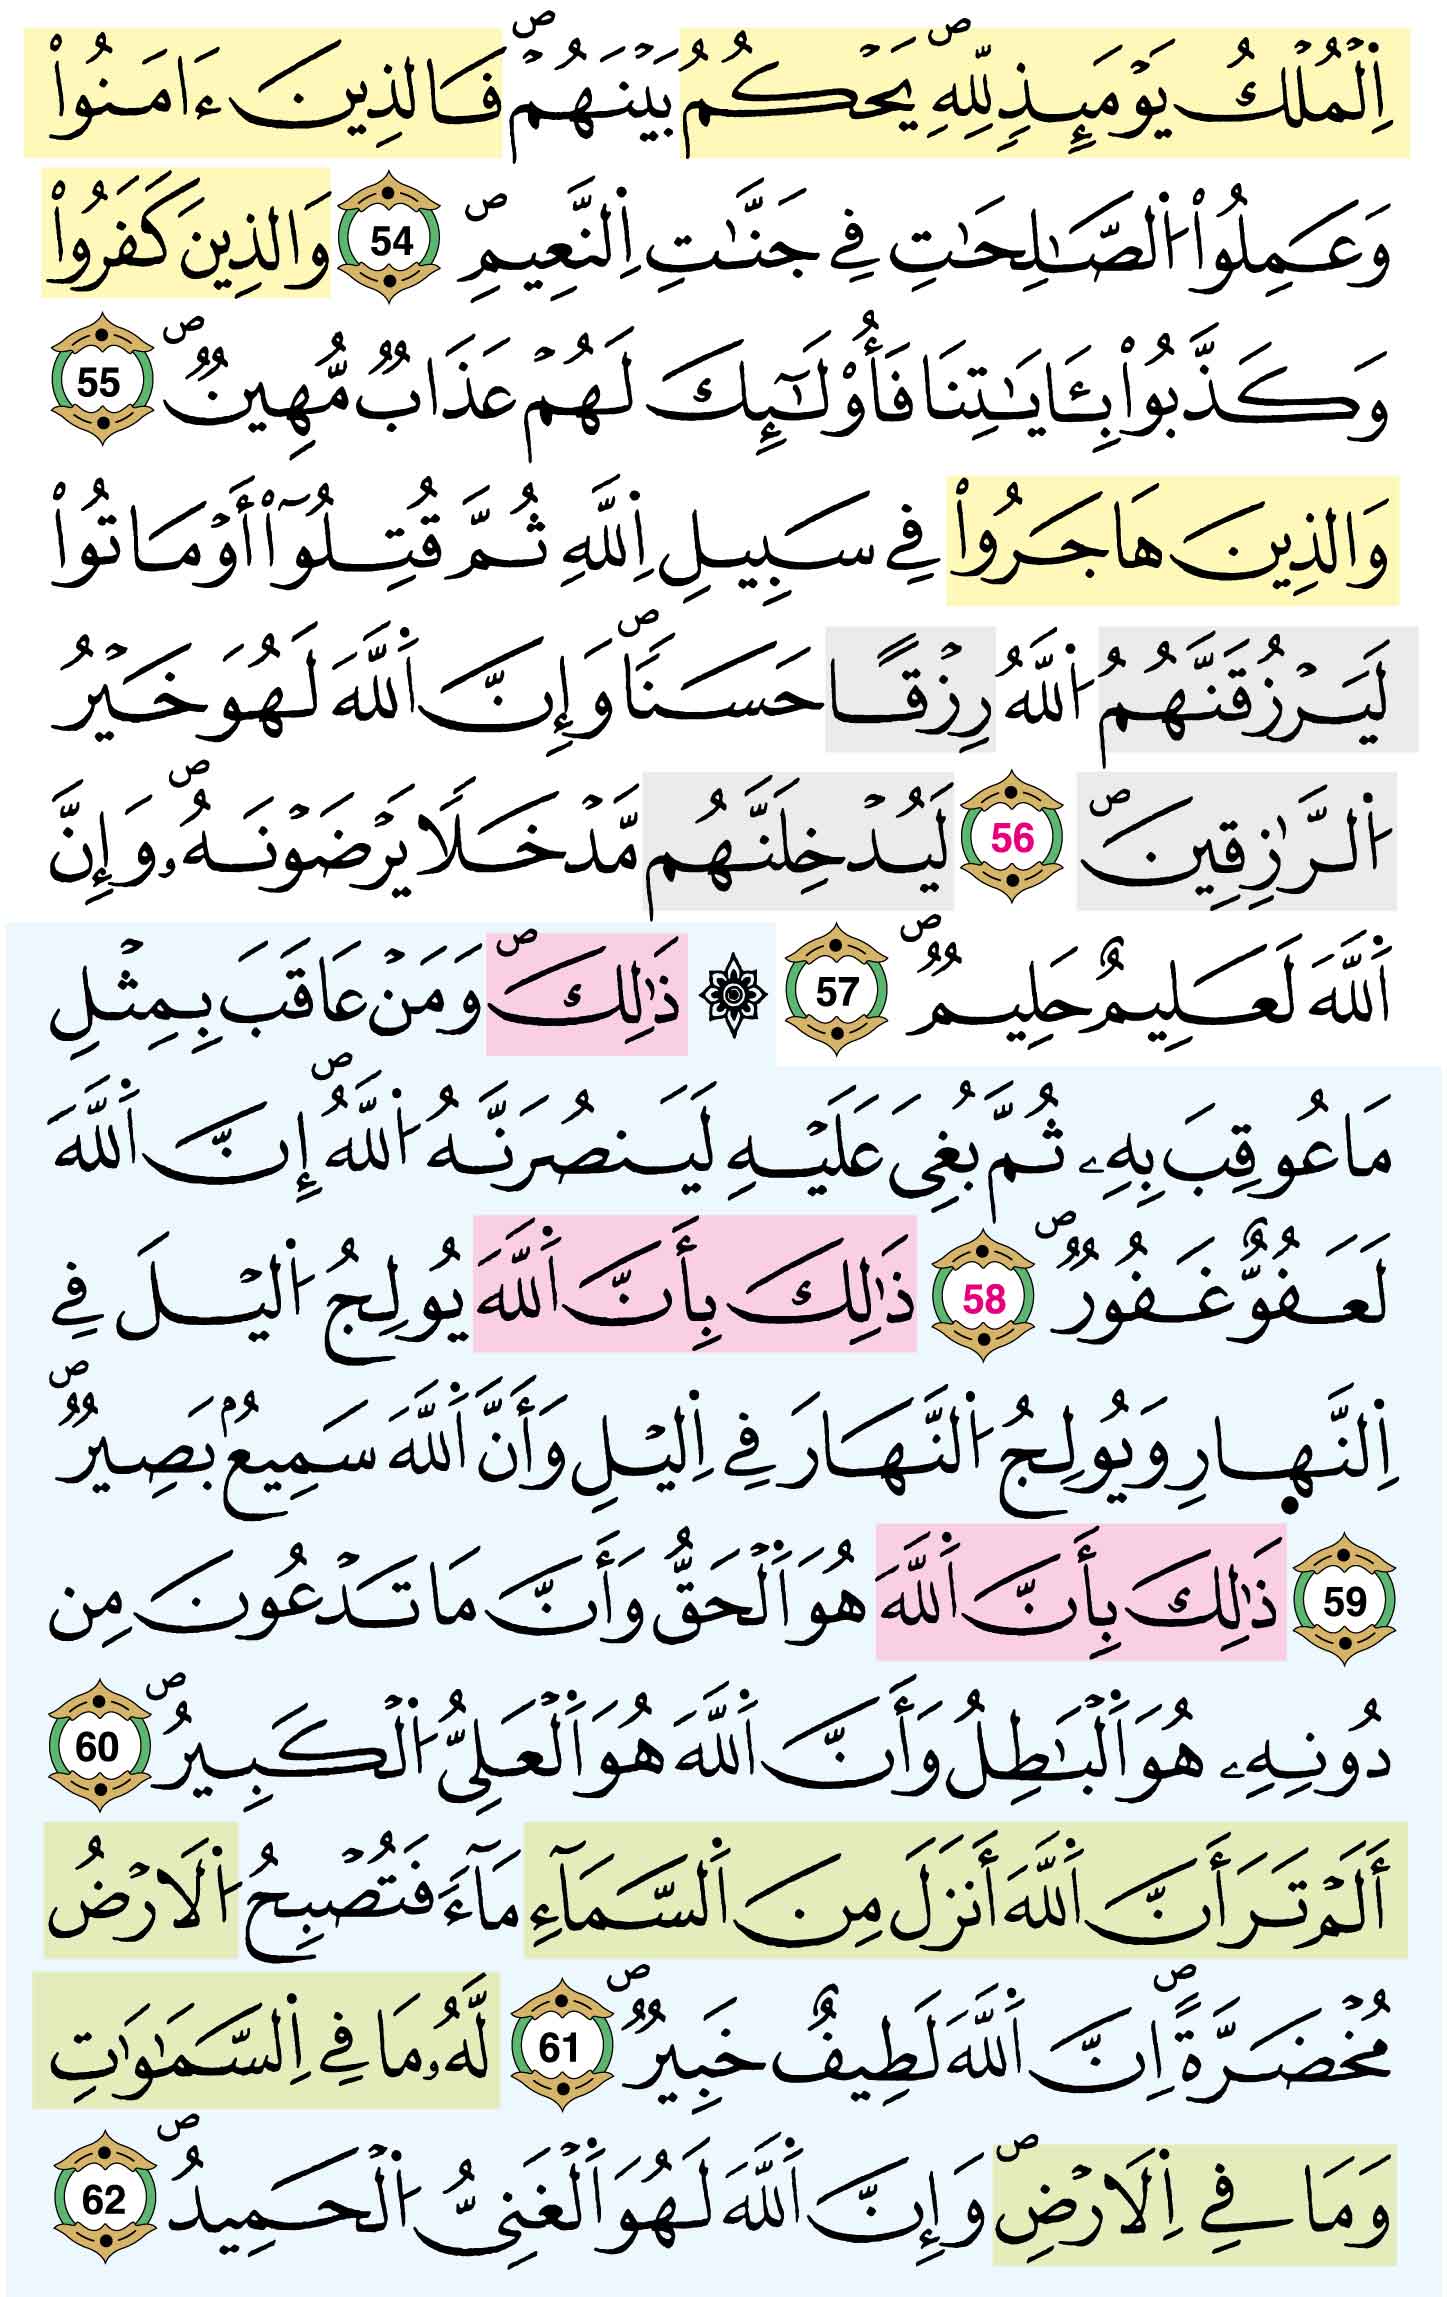 اِ۬لْمُلْكُ يَوْمَئِذٍ لِّلهِۖ يَحْكُمُ بَيْنَهُمْۖ فَالذِينَ ءَامَنُواْ
وَعَمِلُواْ اُ۬لصَّٰلِحَٰتِ فِے جَنَّٰتِ اِ۬لنَّعِيمِۖ 54 وَالذِينَ كَفَرُواْ
وَكَذَّبُواْ بِـَٔايَٰتِنَا فَأُوْلَٰٓئِكَ لَهُمْ عَذَابٌ مُّهِينٌۖ 55
وَالذِينَ هَاجَرُواْ فِے سَبِيلِ اِ۬للَّهِ ثُمَّ قُتِلُوٓاْ أَوْ مَاتُواْ
لَيَرْزُقَنَّهُمُ اُ۬للَّهُ رِزْقًا حَسَنَاۖ وَإِنَّ اَ۬للَّهَ لَهُوَ خَيْرُ
اُ۬لرَّٰزِقِينَۖ 56 لَيُدْخِلَنَّهُم مَّدْخَلًا يَرْضَوْنَهُۥۖ وَإِنَّ
اَ۬للَّهَ لَعَلِيمٌ حَلِيمٌۖ 57 ۞ ذَٰلِكَۖ وَمَنْ عَاقَبَ بِمِثْلِ
مَا عُوقِبَ بِهِۦ ثُمَّ بُغِيَ عَلَيْهِ لَيَنصُرَنَّهُ اُ۬للَّهُۖ إِنَّ اَ۬للَّهَ
لَعَفُوٌّ غَفُورٌۖ 58 ذَٰلِكَ بِأَنَّ اَ۬للَّهَ يُولِجُ اُ۬ليْلَ فِے
اِ۬لنَّهارِ وَيُولِجُ اُ۬لنَّهَارَ فِے اِ۬ليْلِ وَأَنَّ اَ۬للَّهَ سَمِيعُۢ بَصِيرٌۖ
59 ذَٰلِكَ بِأَنَّ اَ۬للَّهَ هُوَ اَ۬لْحَقُّ وَأَنَّ مَا تَدْعُونَ مِن
دُونِهِۦ هُوَ اَ۬لْبَٰطِلُ وَأَنَّ اَ۬للَّهَ هُوَ اَ۬لْعَلِيُّ اُ۬لْكَبِيرُۖ 60
أَلَمْ تَرَ أَنَّ اَ۬للَّهَ أَنزَلَ مِنَ اَ۬لسَّمَآءِ مَآءً فَتُصْبِحُ اُ۬لَارْضُ
مُخْضَرَّةًۖ اِنَّ اَ۬للَّهَ لَطِيفٌ خَبِيرٌۖ 61 لَّهُۥ مَا فِے اِ۬لسَّمَٰوَٰتِ
وَمَا فِے اِ۬لَارْضِۖ وَإِنَّ اَ۬للَّهَ لَهُوَ اَ۬لْغَنِيُّ اُ۬لْحَمِيدُۖ 62